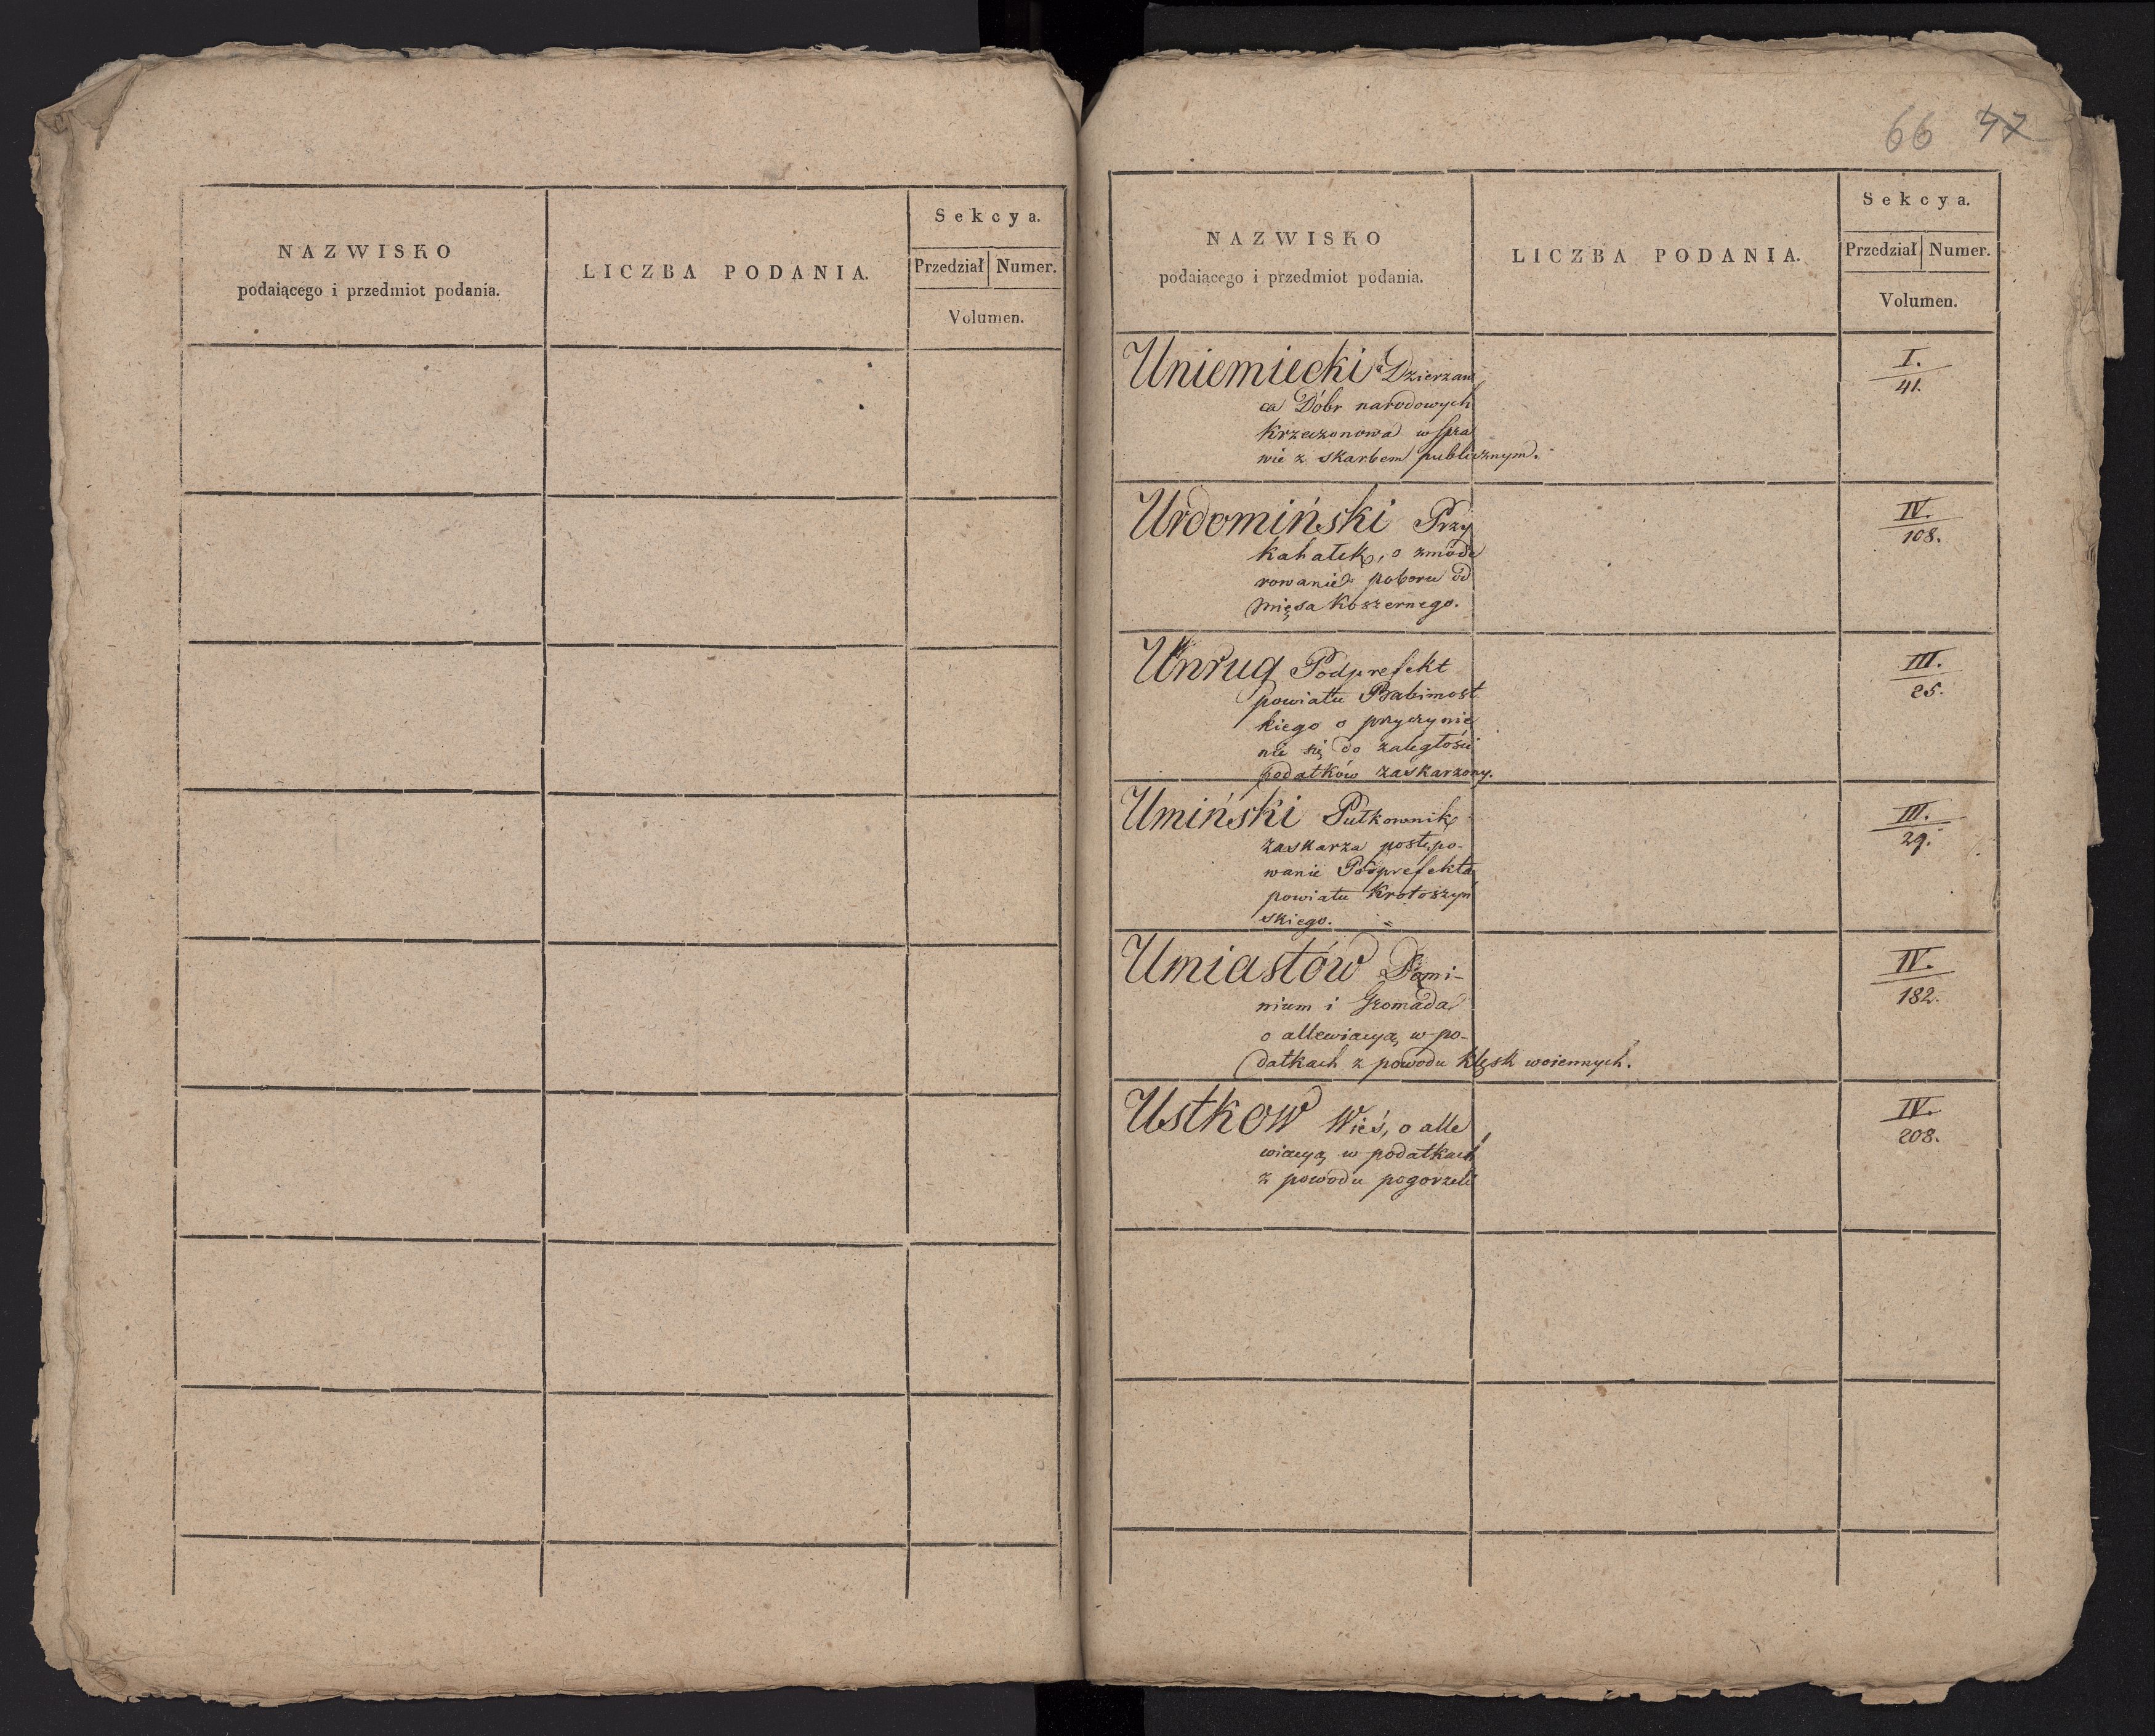 NAZWISKO
podaiącego i przedmiot podania.
LICZBA PODANIA.
Sekcya.
Przedział Numer.
Volumen.
66 47
NAZWISKO
podaiącego i przedmiot podania.
LICZBA PODANIA.
Sekcya.
Przedział Numer.
Volumen.
Uniemiecki Dzierzaw
ca Dóbr narodowych
Krzczonowa w spra
wie z skarbem publicznym.
I.
41.
Urdomiński Przy
kahałek, o zmode
rowanie poboru od
mięsa Koszernego.
IV.
108.
Unrug Podprefekt
powiatu Babimost
kiego o przyczynie
nie się do zaległości
podatków zaskarzony.
III.
25.
Umiński Pułkownik
zaskarza postępo-
wanie Podprefekta
powiatu Krotoszyń
skiego.
III.
29.
Umiastów Domi-
nium i Gromada
o allewiacyą w po-
datkach z powodu klęsk woiennych.
IV.
182.
Ustkow Wieś, o alle
wiacyą w podatkach
z powodu pogorzeli
IV.
208.